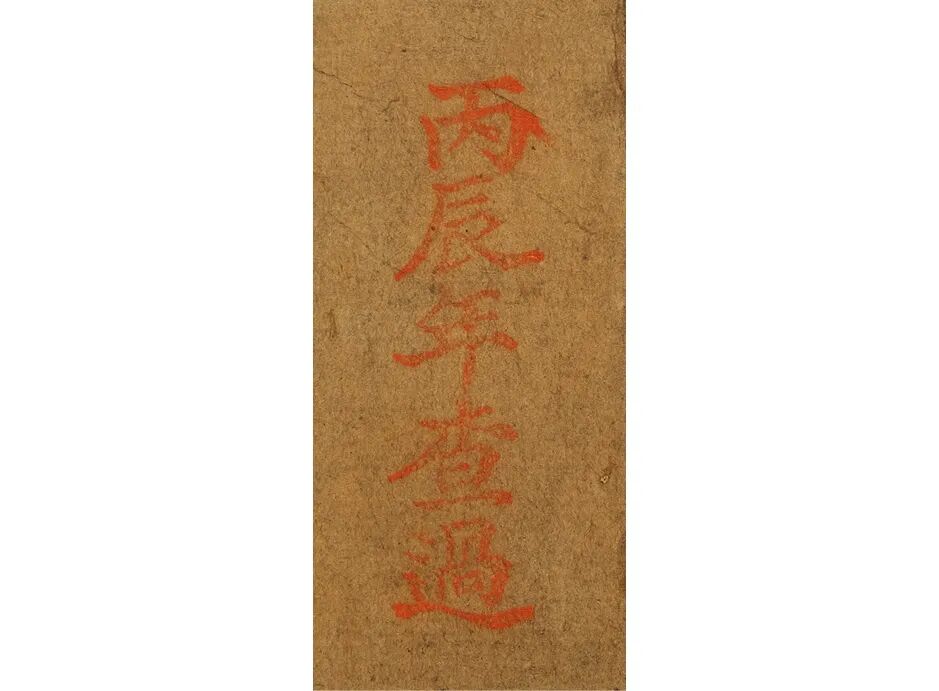 丙辰年查過